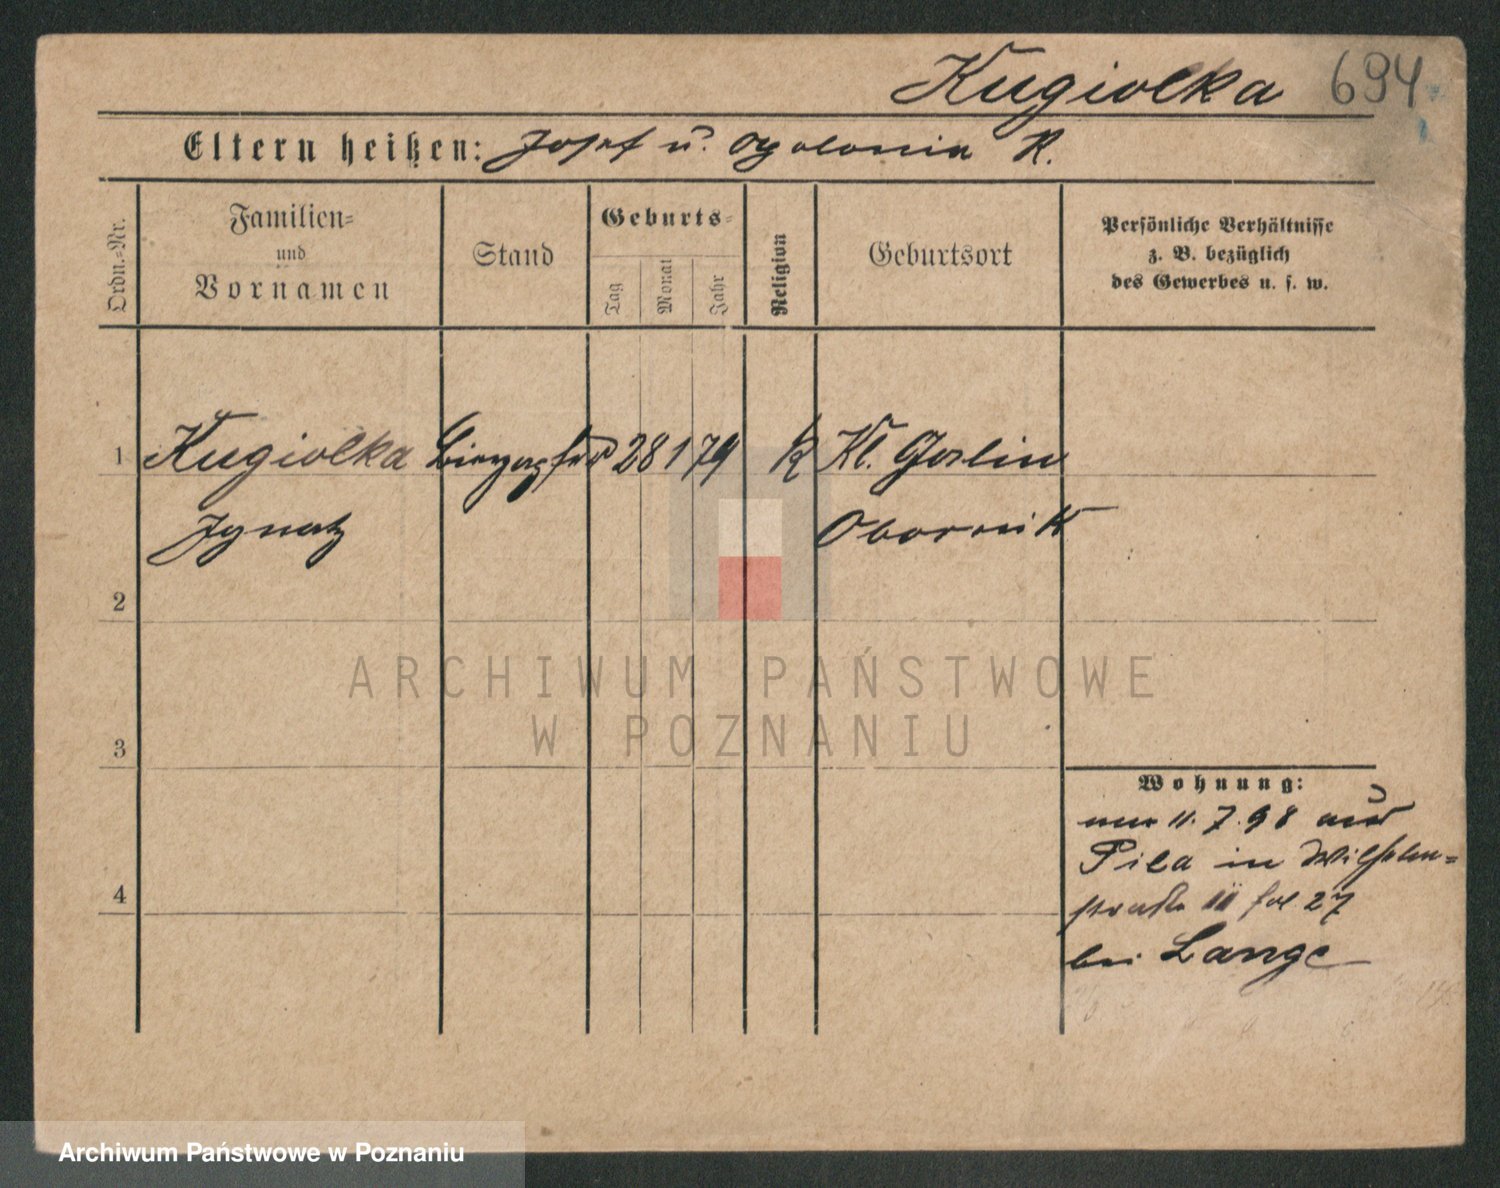 Kugiolka 694
Eltern heißen: Josef u. Apolonia K.
Ordn.-Nr.
Familien-
und
Vornamen
Stand
Geburts-
Tag
Monat
Jahr
Religion
Geburtsort
Persönliche Verhältnisse
z. B. bezüglich
des Gewerbes u. s. w.
1 Kugiolka 28 1 79 K Kl. Goslin
Ignatz Obornik
2
3
4
Wohnung:
11. 7. 98 aus
Pila in Wilhelm-
straße II fol 27
bei Lange
ARCHIWUM PAŃSTWOWE
W POZNANIU
Archiwum Państwowe w Poznaniu